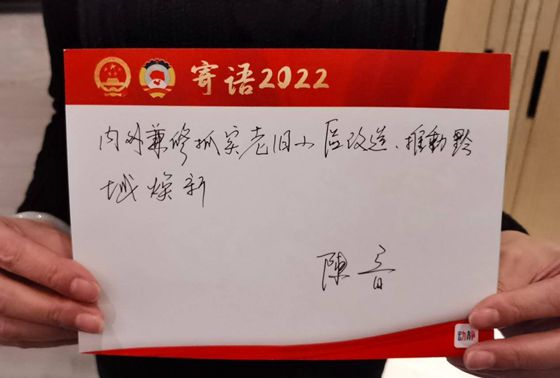 寄语2022
内外兼修抓实老旧小区改造、推動黔
城焕新
陳音
动静